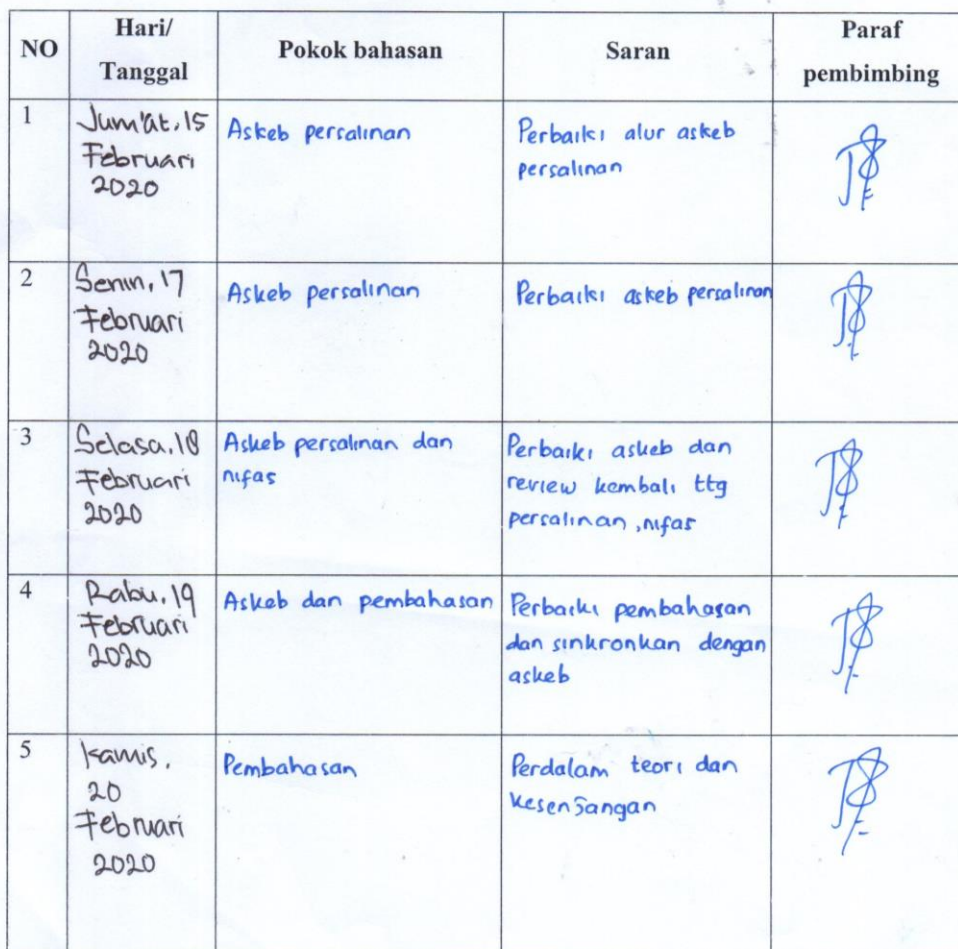 NO
Hari/
Tanggal
Pokok bahasan
Saran
Paraf
pembimbing
1
Jum'at, 15
Februari
2020
Askeb persalinan
Perbaiki alur askeb
persalinan
2
Senin, 17
Februari
2020
Askeb persalinan
Perbaiki askeb persalinan
3
Selasa, 18
Februari
2020
Askeb persalinan dan
nifas
Perbaiki askeb dan
review kembali ttg
persalinan, nifas
4
Rabu, 19
Februari
2020
Askeb dan pembahasan
Perbaiki pembahasan
dan sinkronkan dengan
askeb
5
Kamis,
20
Februari
2020
Pembahasan
Perdalam teori dan
kesenjangan